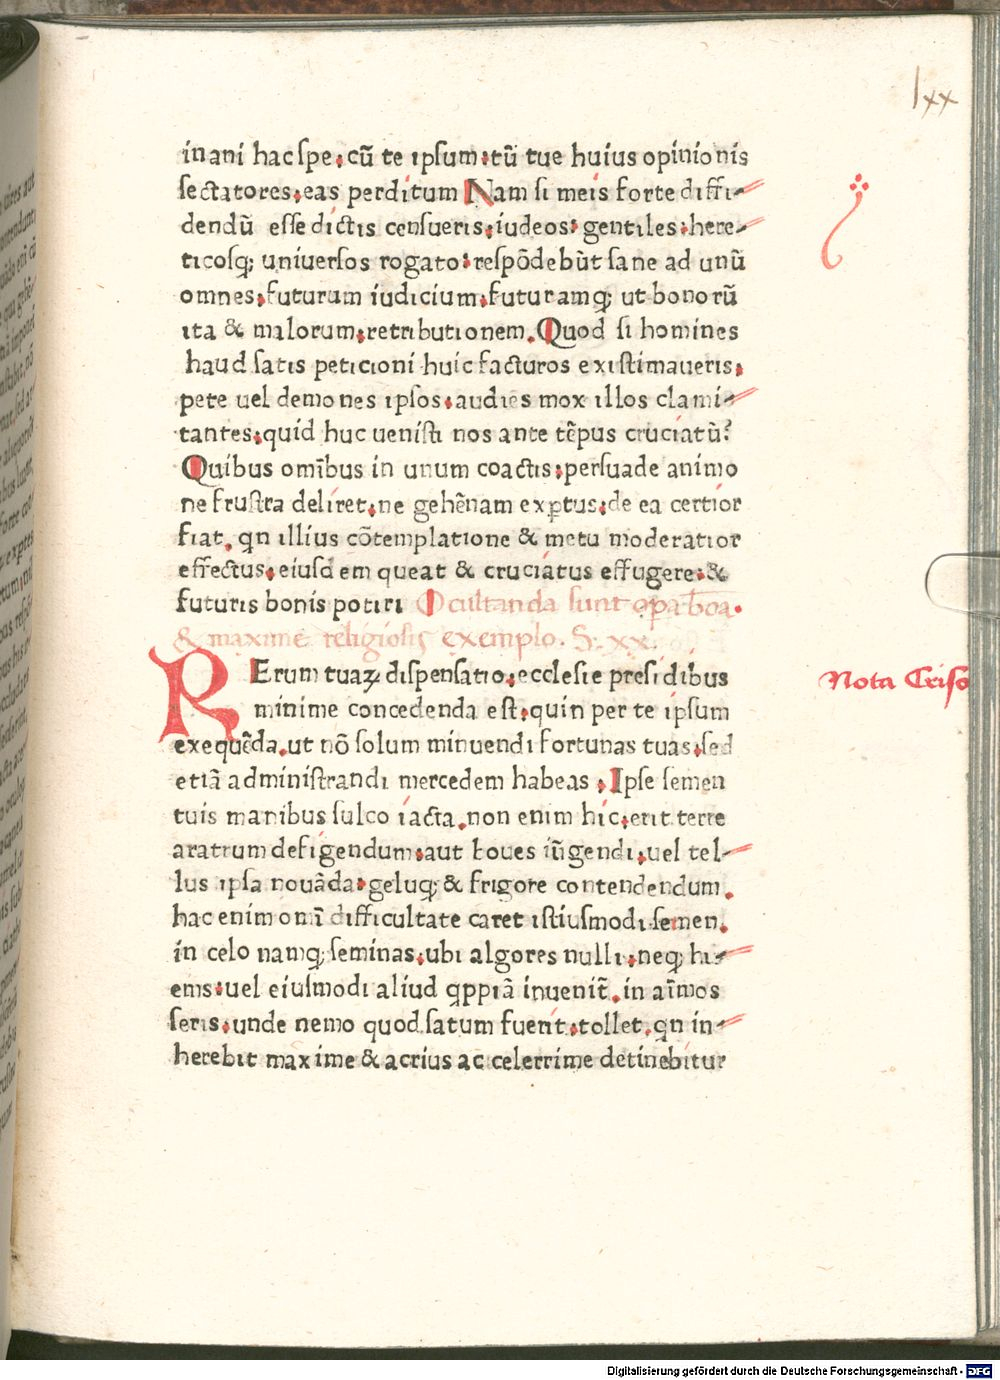 lxx
inani hac ſpe, cū te ipſum, tū tue huius opinionis
ſectatores, eas perditum Nam ſi meis forte diffi-
dendū eſſe dictis cenſueris, iudeos, gentiles, here-
ticoſq; univerſos rogato, reſpōdebūt ſane ad unū
omnes, futurum iudicium, futuramq; ut bonorū
ita & malorum, retributionem. Quod ſi homines
haud ſatis peticioni huic facturos exiſtimaueris,
pete uel demones ipſos, audies mox illos clami-
tantes, quid huc ueniſti nos ante tēpus cruciatū?
Quibus omībus in unum coactis, perſuade animo
ne fruſtra deliret, ne gehēnam exꝑtus, de ea certior
fiat, qn illius cōtemplatione & metu moderatior
effectus, eiuſdem queat & cruciatus effugere, &
futuris bonis potiri Ocultanda ſunt oꝑa boā.
& maxime religioſis exemplo. S. xx.
RErum tuaꝝ diſpenſatio, eccleſie preſidibus
Nota Criſo
minime concedenda eſt, quin per te ipſum
exequēda, ut nō ſolum minuendi fortunas tuas, ſed
etiā adminiſtrandi mercedem habeas, Ipſe ſemen
tuis manibus ſulco iacta, non enim hic, erit terre
aratrum defigendum, aut boues iūgendi, uel tel-
lus ipſa nouāda, geluq; & frigore contendendum.
hac enim omī difficultate caret iſtiuſmodi ſemen.
in celo namq; ſeminas, ubi algores nulli, neq; hi-
ems, uel eiuſmodi aliud ꝙppiā inuenit̄, in aīmos
ſeris, unde nemo quod ſatum fuerit, tollet, qn in-
herebit maxime & acrius ac celerrime detinebitur
Digitalisierung gefördert durch die Deutsche Forschungsgemeinschaft - DFG